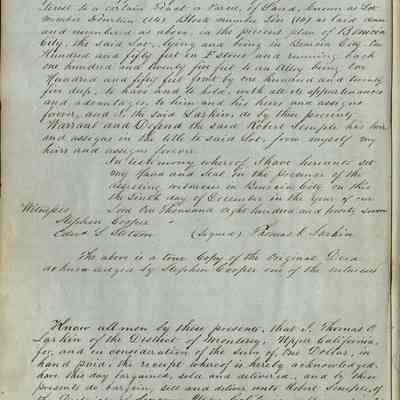 Street to a certain Tract or Parcel of Land, known as Lot
Number Fourteen (14) Block number Ten (10) as laid down
and numbered as above, in the present plan of Benicia
City, the said Lot, lying and being in Benicia City One
Hundred and fifty feet on F street and running back
one hundred and twenty five feet to an Alley being One
Hundred and fifty feet front by one hundred and twenty
five deep, to have and to hold, with all its appurtenances
and advantages, to him and his heirs and assigns
forever, and I, the said Larkin, do by these presents
Warrant and Defend the said Robert Semple his heirs
and assigns in the title to said Lot, from myself my
heirs and assigns forever
In testimony whereof I have hereunto set
my hand and seal in the presence of the
subscribing witnesses in Benicia City on this
the Sixth day of December in the year of our
Witnesses Lord One Thousand eight hundred and forty seven
Stephen Cooper
Edwd L Stetson (Signed) Thomas O. Larkin
The above is a true Copy of the Original Deed
acknowledged by Stephen Cooper one of the witnesses
Know all men by these present, that I, Thomas O
Larkin of the District of Monterey, Upper California,
for, and in consideration of the sum of One Dollar, in
hand paid, the receipt whereof is hereby acknowledged,
have this day bargained, sold and delivered, and by these
presents do bargain, sell and deliver unto Robert Semple, of
the District of Sonoma, Upper California